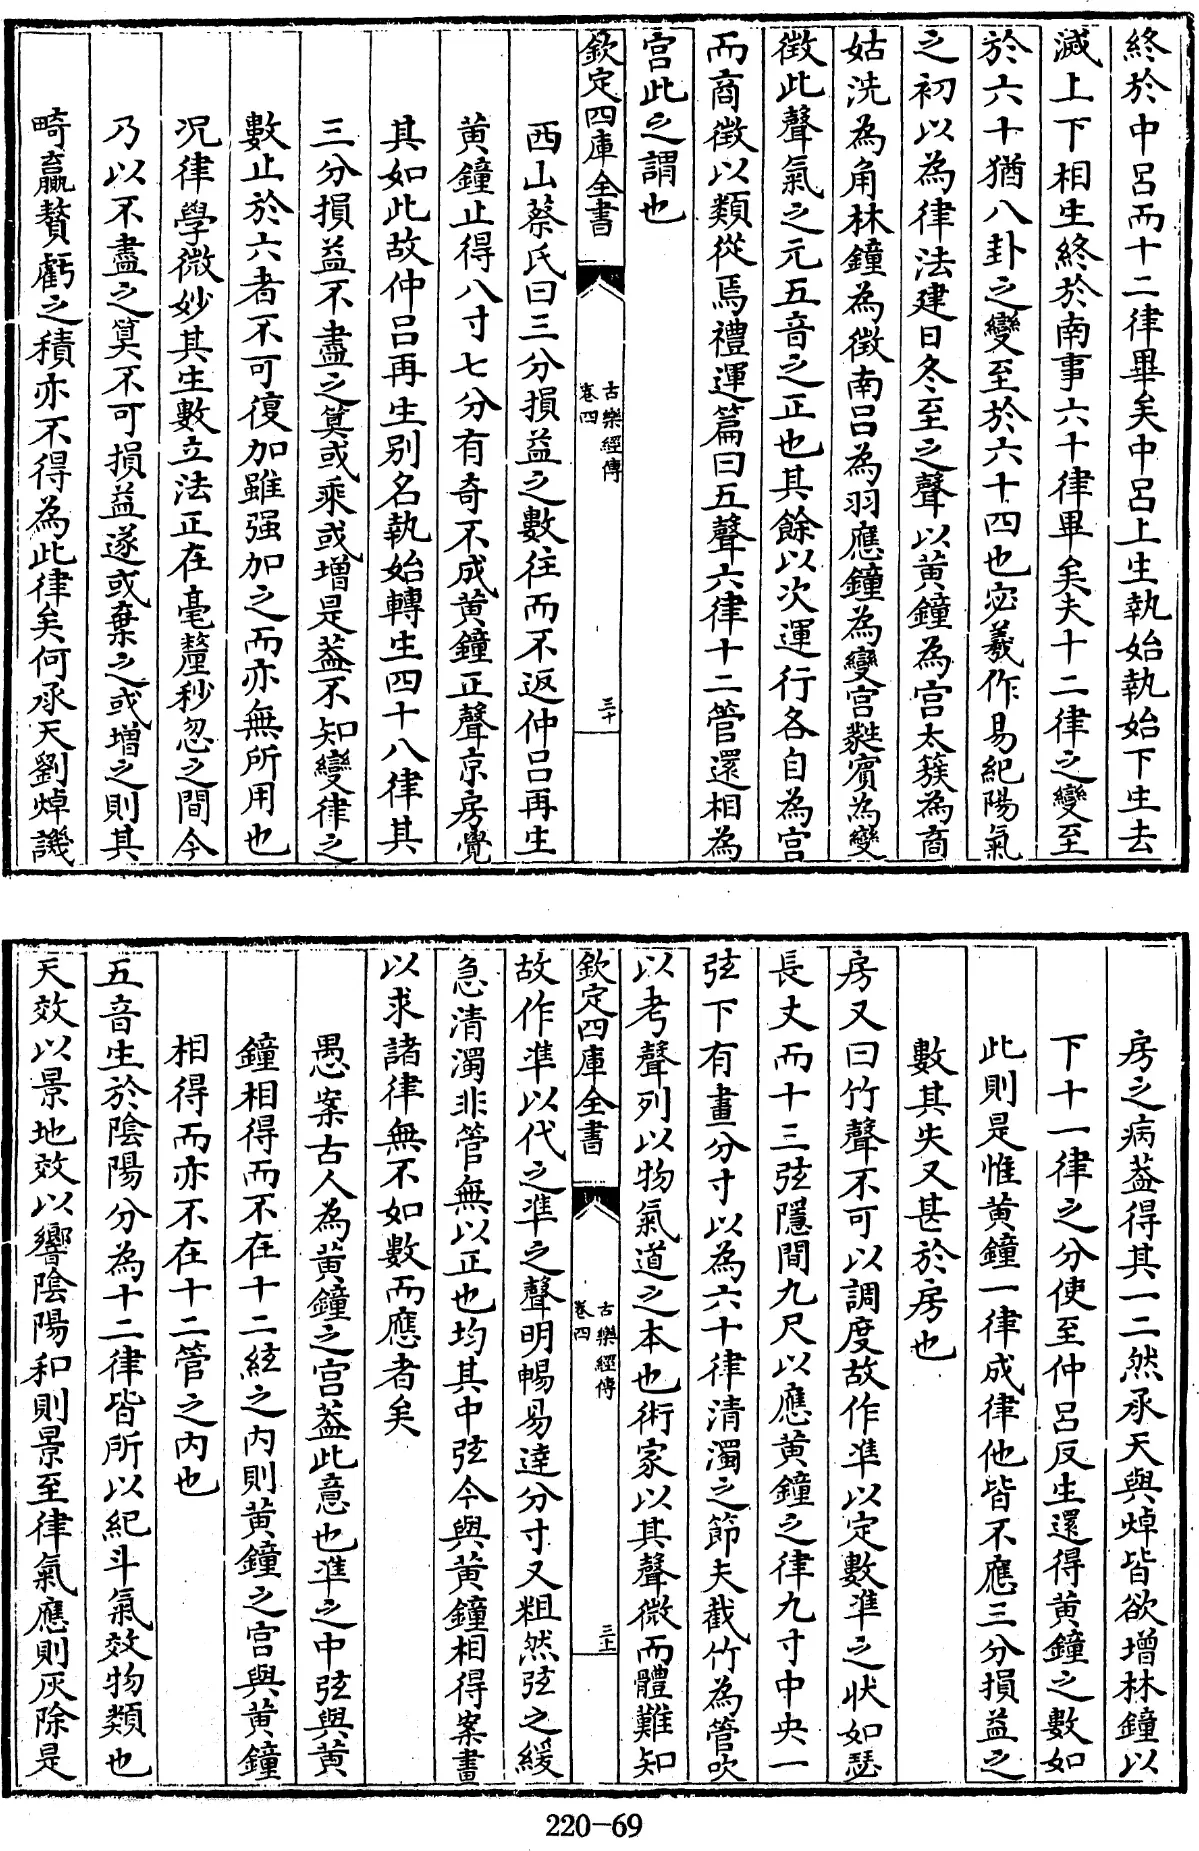 終於中呂而十二律畢矣中呂上生執始執始下生去
滅上下相生終於南事六十律畢矣夫十二律之變至
於六十猶八卦之變至於六十四也宓羲作易紀陽氣
之初以為律法建日冬至之聲以黄鐘為宫太簇為商
姑洗為角林鐘為徵南呂為羽應鐘為變宫蕤賓為變
徵此聲氣之元五音之正也其餘以次運行各自為宫
而商徵以類從焉禮運篇曰五聲六律十二管還相為
宫此之謂也
欽定四庫全書
古樂經傳
卷四
三十
西山蔡氏曰三分損益之數往而不返仲呂再生
黄鐘止得八寸七分有奇不成黄鐘正聲京房覺
其如此故仲呂再生别名執始轉生四十八律其
三分損益不盡之筭或乘或增是葢不知變律之
數止於六者不可復加雖强加之而亦無所用也
况律學微妙其生數立法正在毫釐秒忽之間今
乃以不盡之筭不可損益遂或棄之或増之則其
畸贏贅虧之積亦不得為此律矣何承天劉焯譏
房之病葢得其一二然承天與焯皆欲增林鐘以
下十一律之分使至仲呂反生還得黄鐘之數如
此則是惟黄鐘一律成律他皆不應三分損益之
數其失又甚於房也
房又曰竹聲不可以調度故作凖以定數凖之狀如瑟
長丈而十三弦隱間九尺以應黄鐘之律九寸中央一
弦下有畫分寸以為六十律清濁之節夫截竹為管吹
以考聲列以物氣道之本也術家以其聲微而體難知
欽定四庫全書
古樂經傳
卷四
三十一
故作凖以代之凖之聲明暢易達分寸又粗然弦之緩
急清濁非管無以正也均其中弦令與黄鐘相得案畫
以求諸律無不如數而應者矣
愚案古人為黄鐘之宫葢此意也凖之中弦與黄
鐘相得而不在十二絃之内則黄鐘之宫與黄鐘
相得而亦不在十二管之内也
五音生於陰陽分為十二律皆所以紀斗氣效物類也
天效以景地效以響陰陽和則景至律氣應則灰除是
220-69